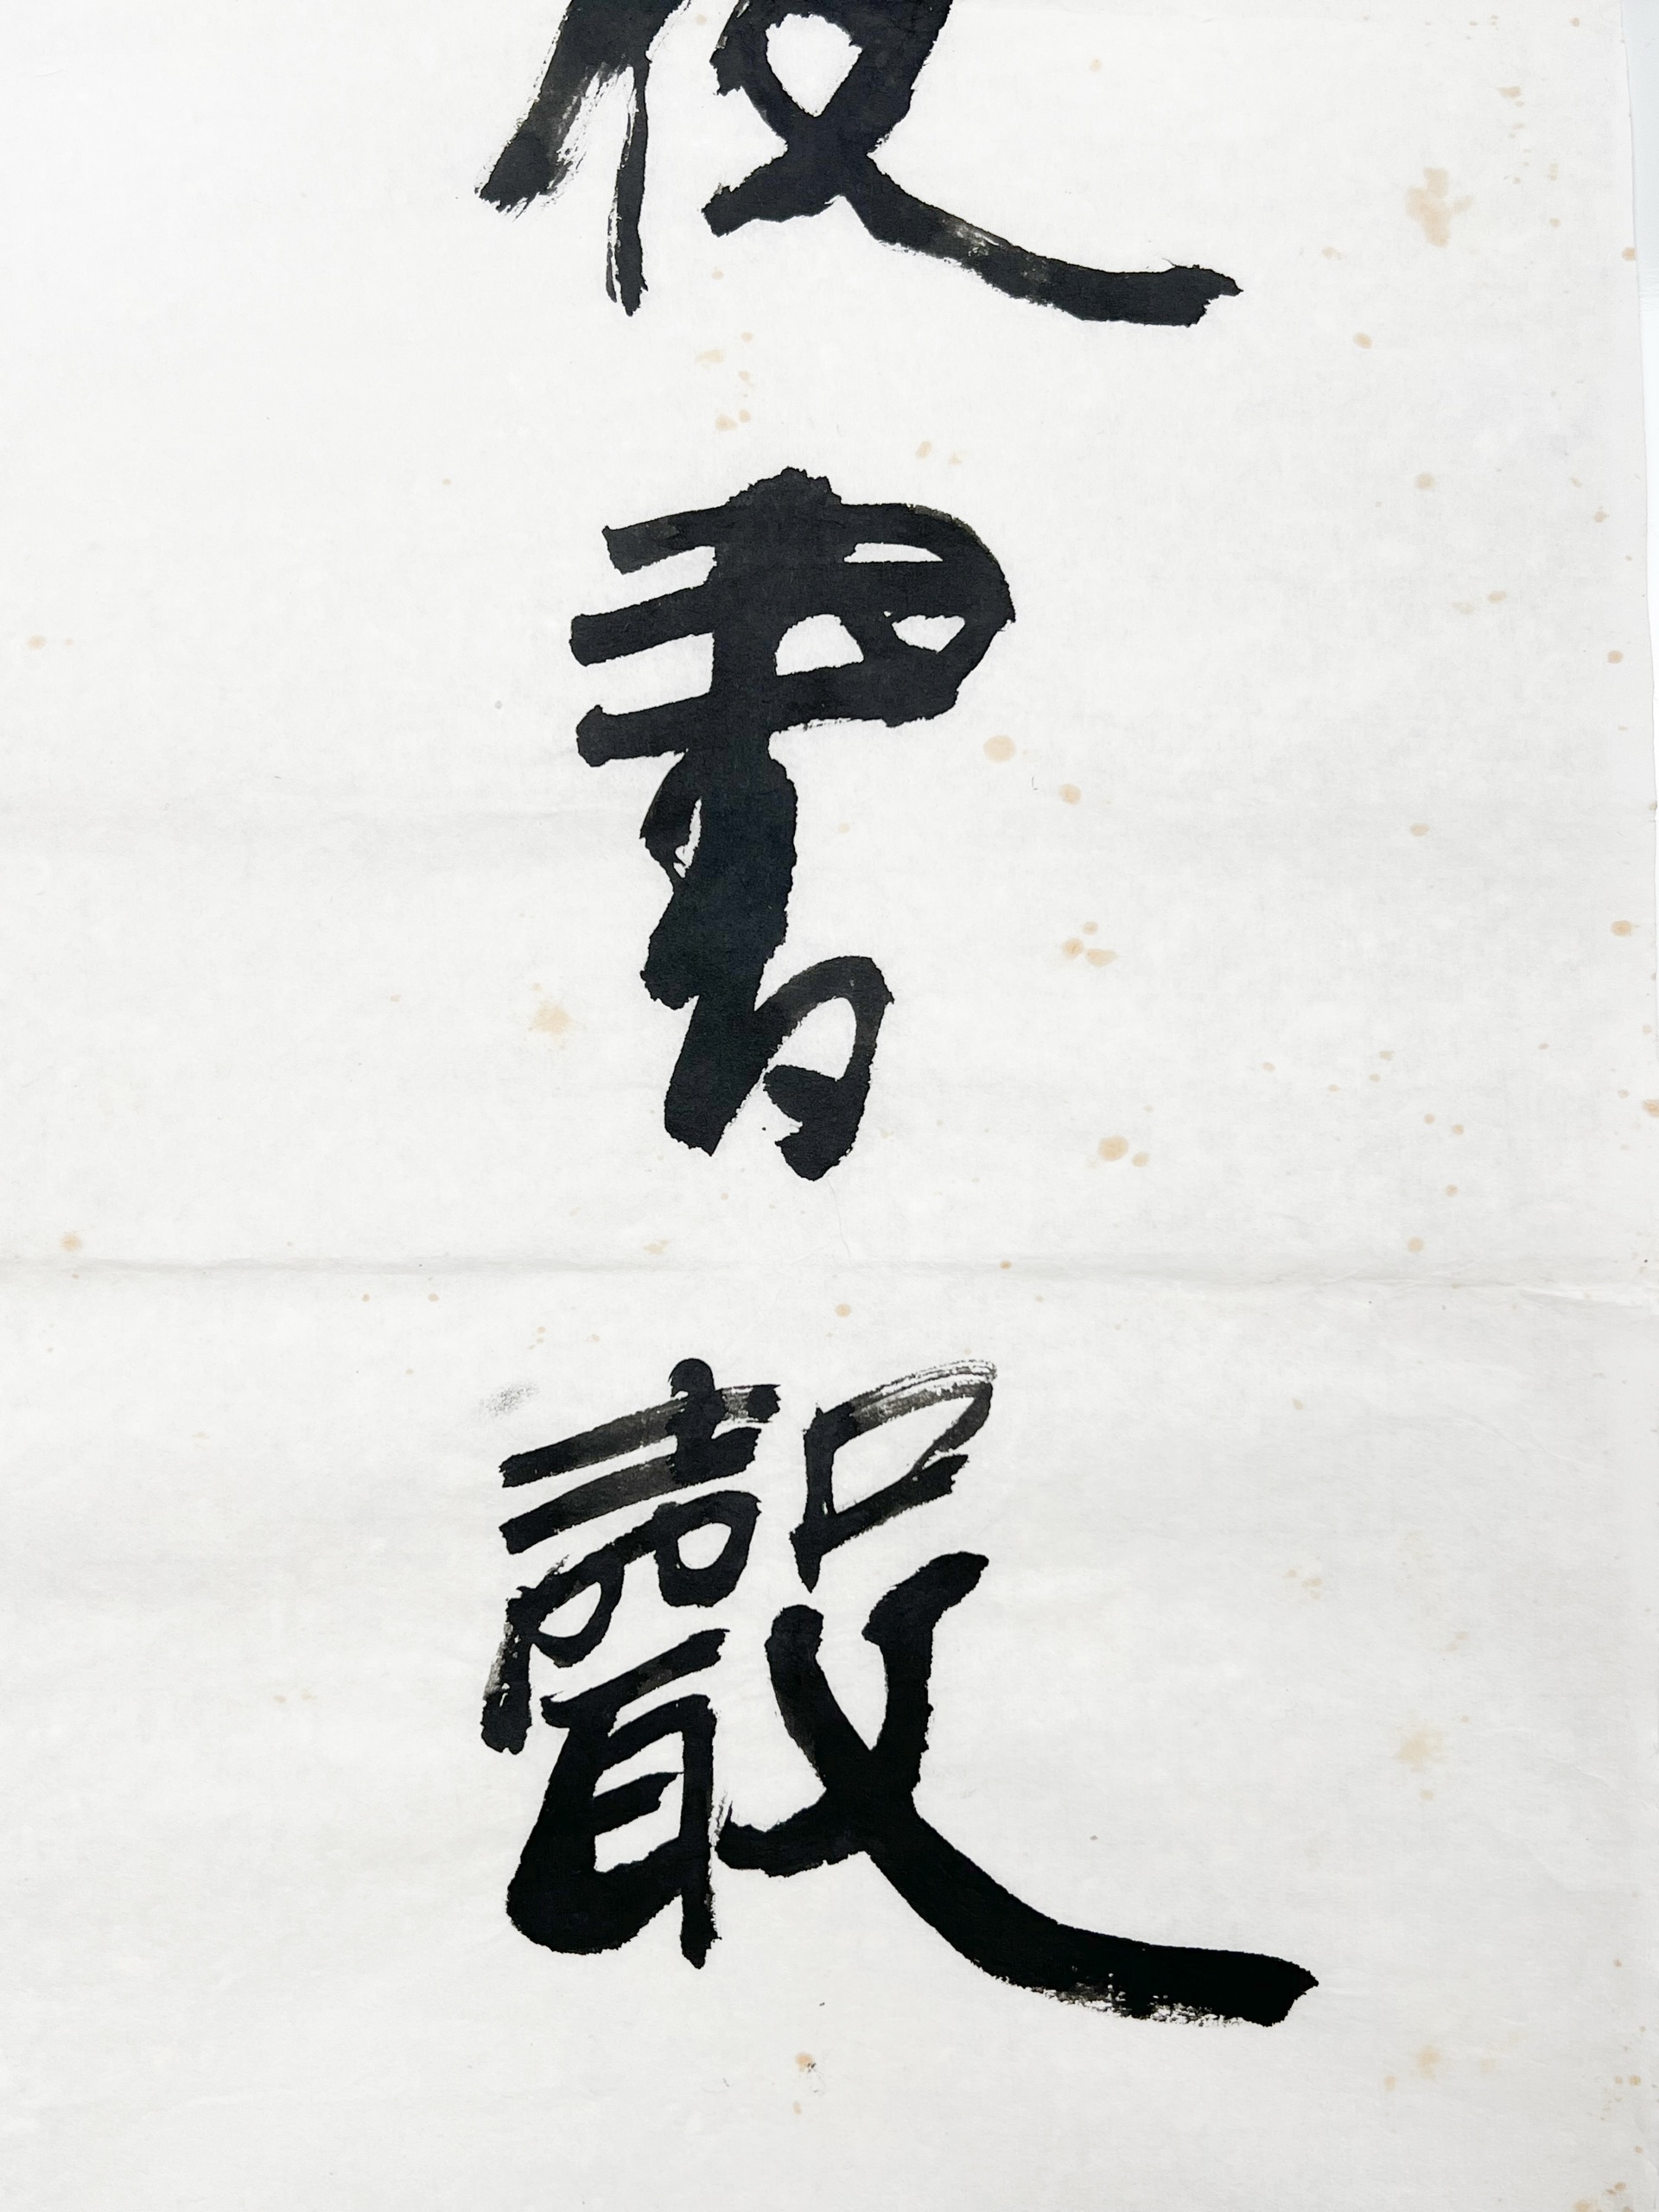 夜書聲